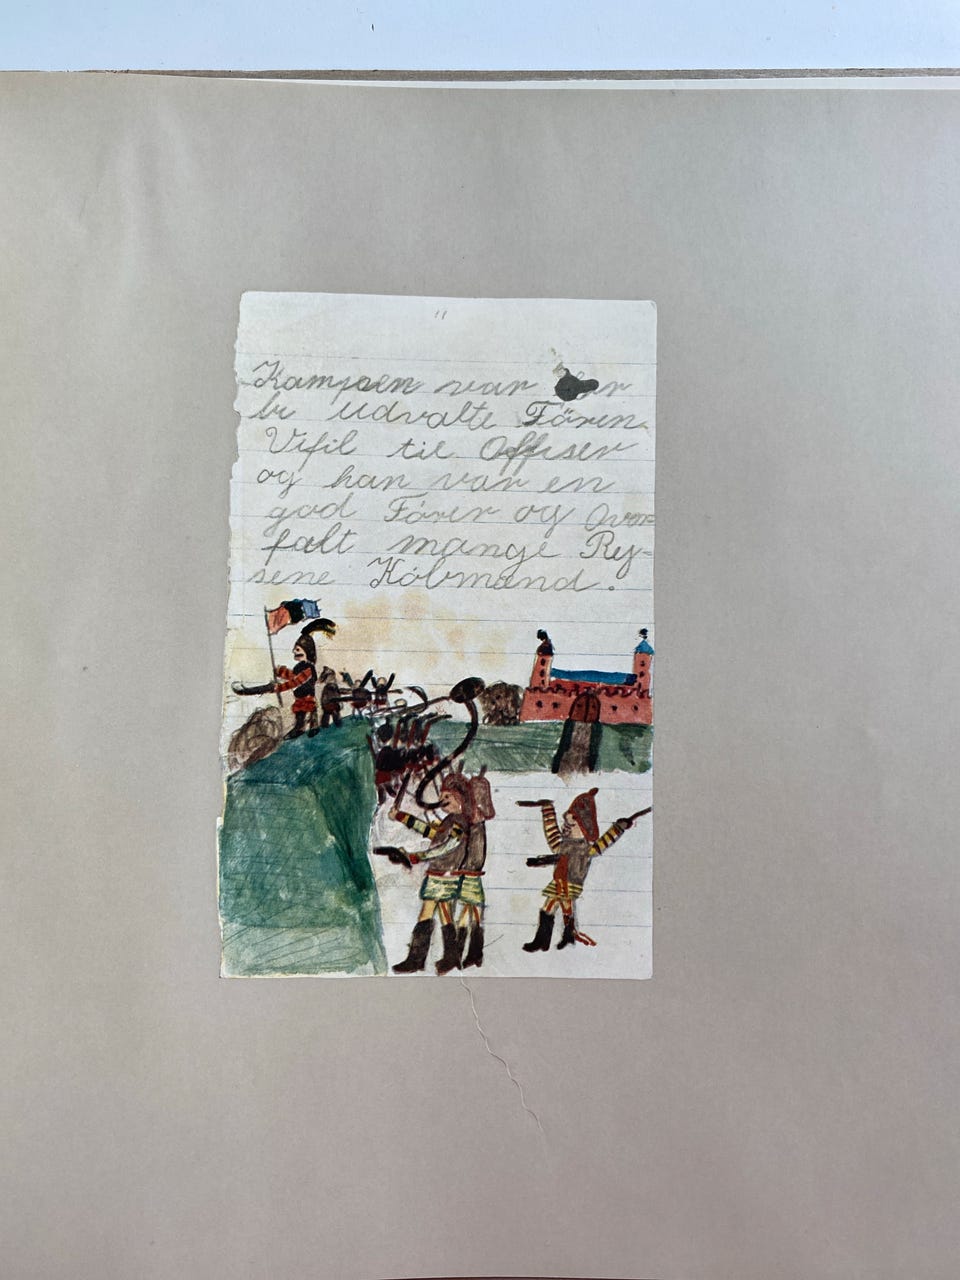 11
Kampen var
bı udvalte Fören
Vifil til Offiser
og han var en
god Förer og Over=
falt mange Ry=
sene Köbmænd.